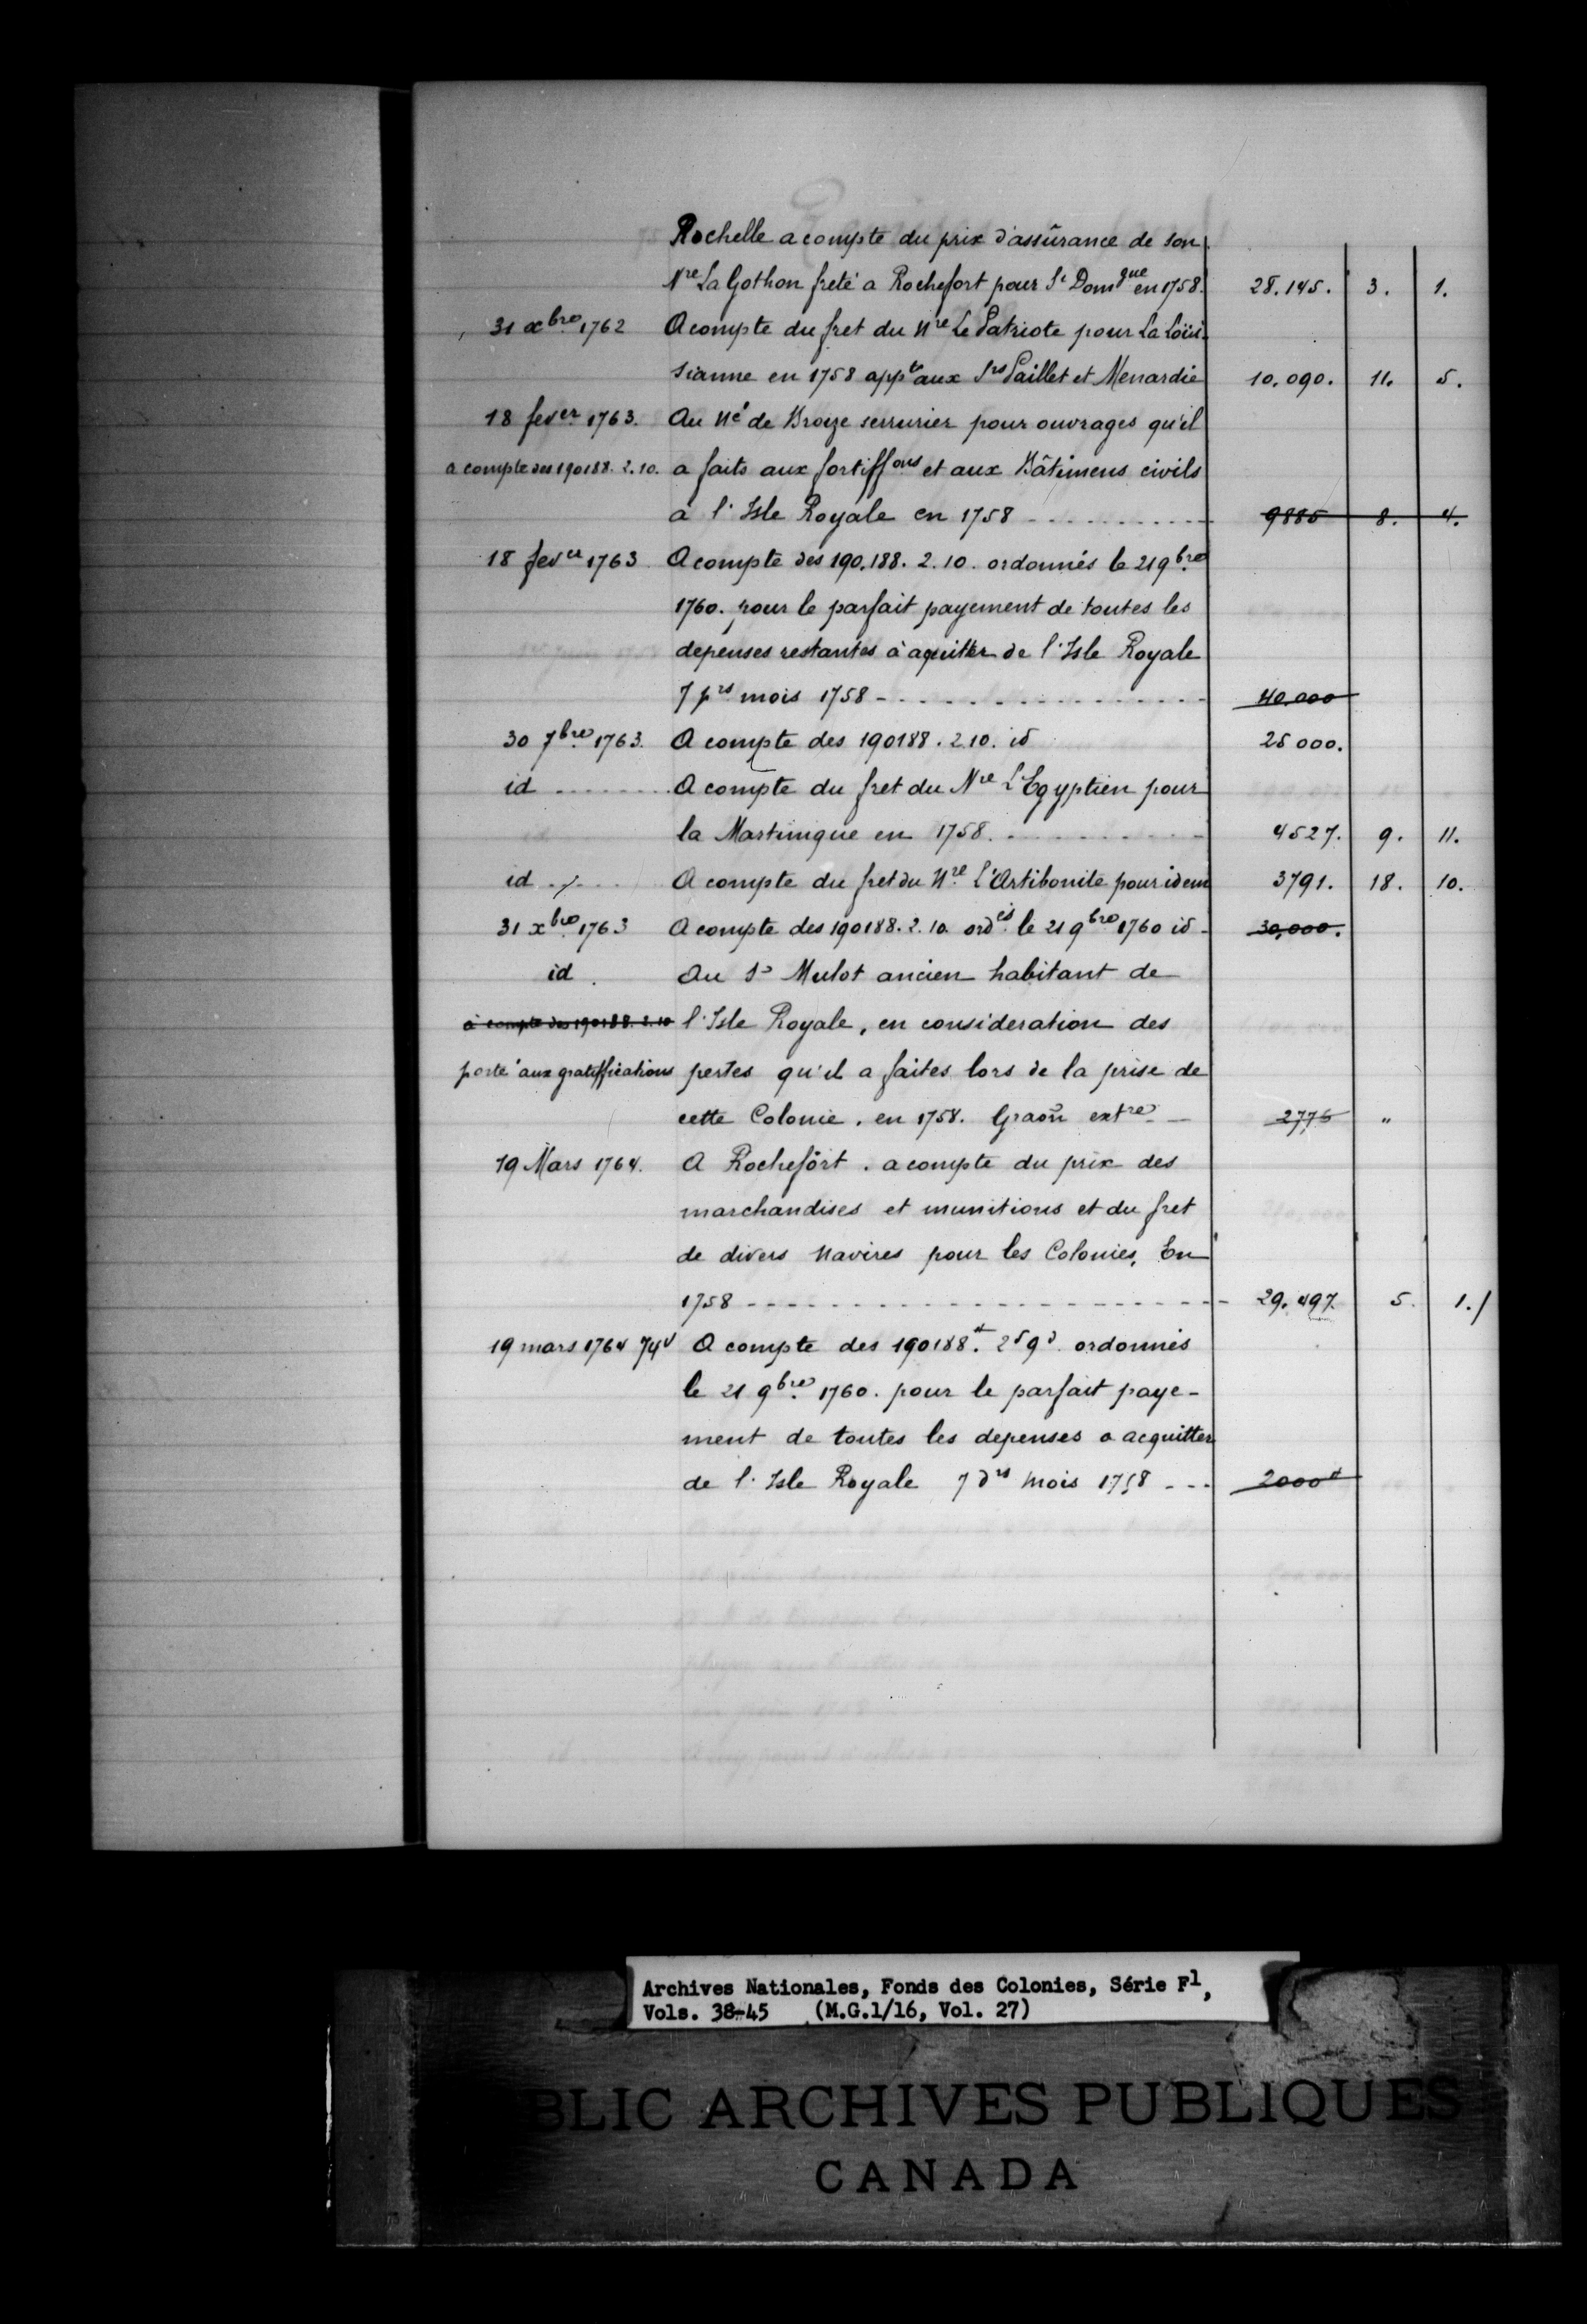 Rochelle a compte du prix d'assûrance de son
Nre La Gothon freté a Rochefort pour St Domgue en 1758. 28.145. 3. 1.
31 xbre 1762 A compte du fret du Nre Le Patriote pour La Loüi-
sianne en 1758 appt aux Srs Paillet et Menardie 10.090. 11. 5.
18 fever 1763. Au Né de Broize serrurier pour ouvrages qu'il
a compte des 190188. 2. 10. a faits aux fortiffons et aux Bâtimens civils
à l'Isle Royale en 1758 - - - - - - - - 9885 8. 4.
18 fever 1763 A compte des 190.188. 2. 10. ordonnés le 21 9bre
1760. pour le parfait payement de toutes les
depenses restantes à aquitter de l'Isle Royale
7 prs mois 1758 - - - - - - - - 40.000
30 7bre 1763. A compte des 190188. 2. 10. id 25 000.
id - - - - A compte du fret du Nre L'Egyptien pour
la Martinique en 1758. - - - - - - 4527. 9. 11.
id - - - A compte du fret du Nre L'Artibonite pour idem 3791. 18. 10.
31 xbre 1763 A compte des 190188. 2. 10. ordés le 21 9bre 1760 id - 30,000.
id. Au Sr Mulot ancien habitant de
à compte des 190188. 2. 10 l'Isle Royale, en consideration des
porté aux gratiffications pertes qu'il a faites lors de la prise de
cette Colonie. en 1758. Graon extre - - 2775 "
19 Mars 1764. A Rochefort. a compte du prix des
marchandises et munitions et du fret
de divers Navires pour les Colonies, En
1758 - - - - - - - - - - 29.497. 5. 1./
19 mars 1764 A compte des 190188.# 2s 9d ordonnés
le 21 9bre 1760. pour le parfait paye-
ment de toutes les depenses a acquitter
de l'Isle Royale 7 drs mois 1758 - - - 2000#
Archives Nationales, Fonds des Colonies, Série F1,
Vols. 38-45 (M.G.1/16, Vol. 27)
BLIC ARCHIVES PUBLIQUES
CANADA